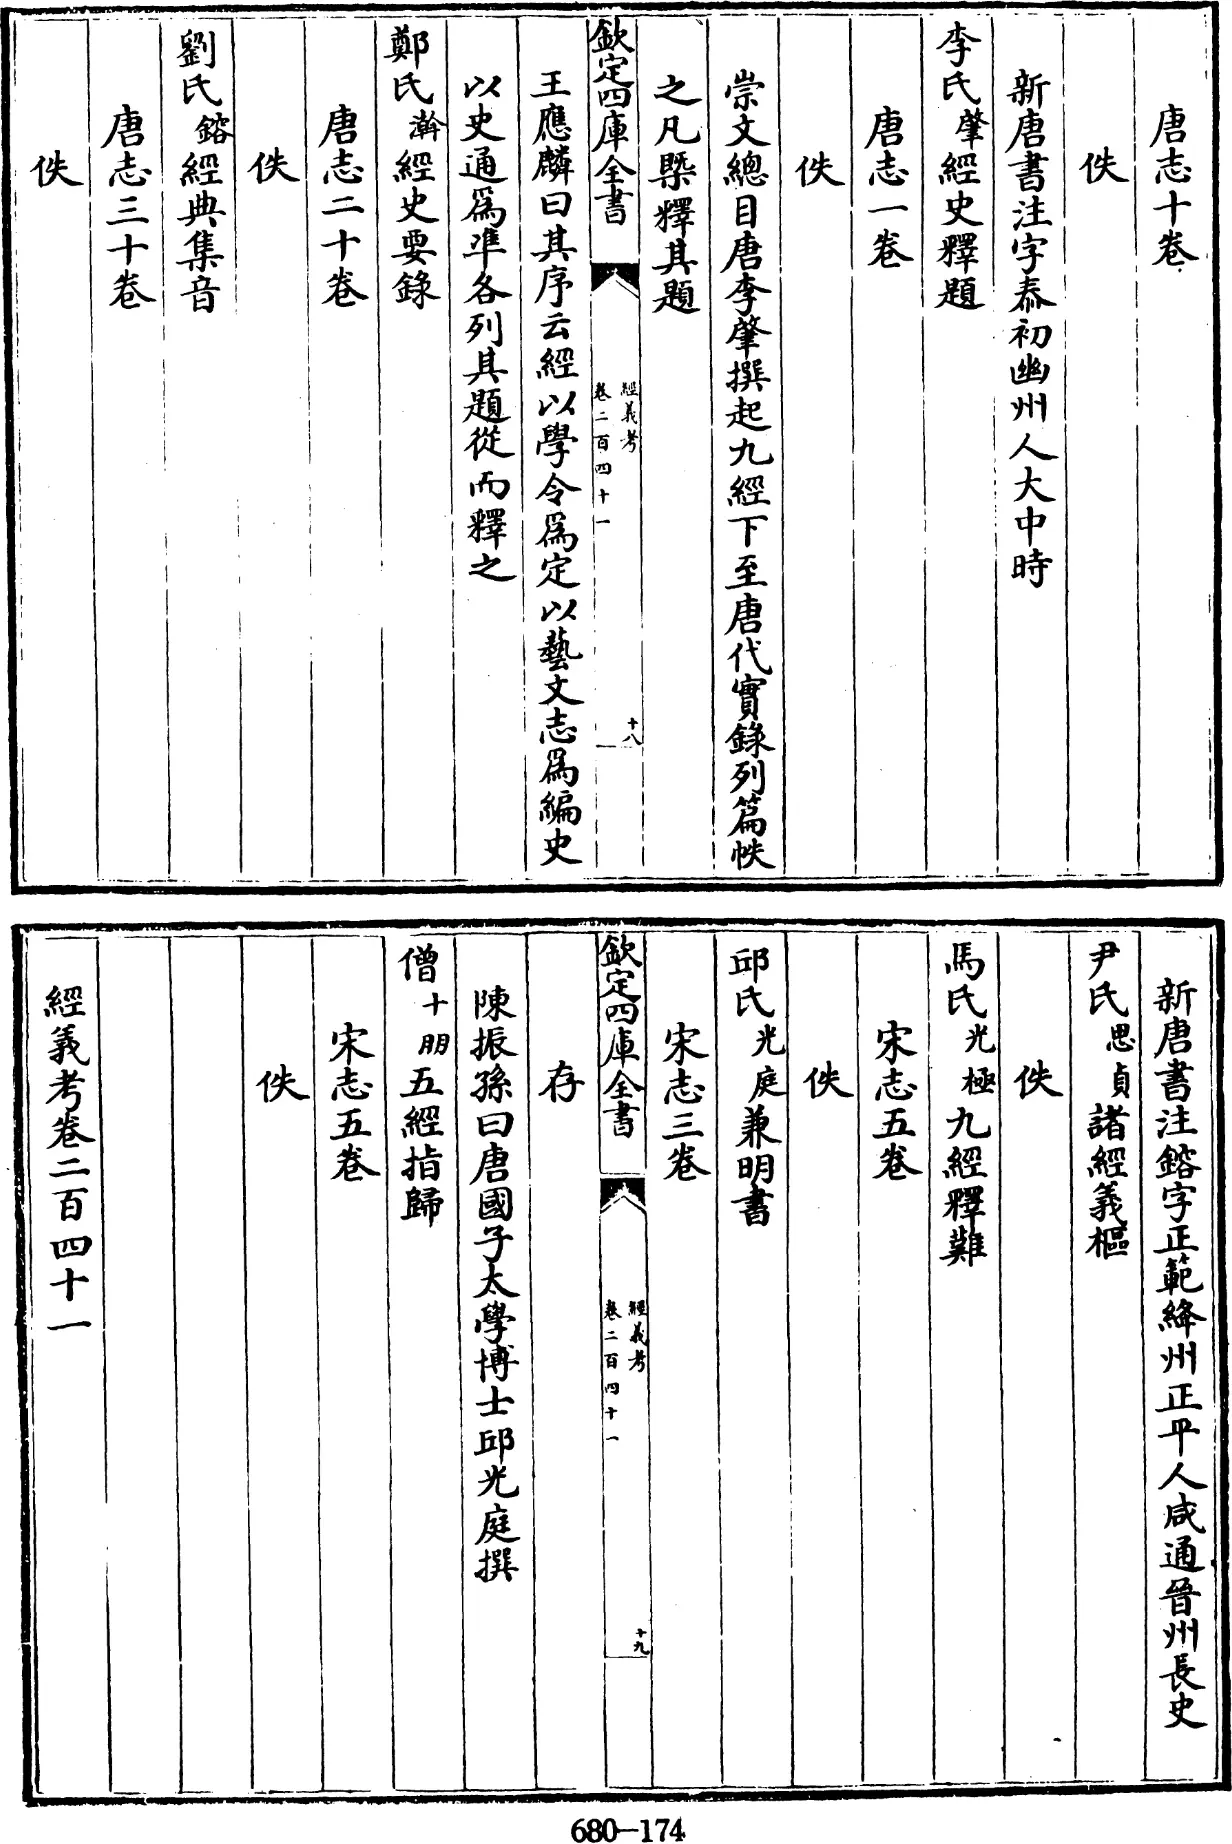 唐志十卷
佚
新唐書注字泰初幽州人大中時
李氏肇經史釋題
唐志一卷
佚
崇文總目唐李肇撰起九經下至唐代實錄列篇帙
之凡槩釋其題
欽定四庫全書
經義考
卷二百四十一
十八
王應麟曰其序云經以學令爲定以藝文志爲編史
以史通爲準各列其題從而釋之
鄭氏澣經史要錄
唐志二十卷
佚
劉氏鎔經典集音
唐志三十卷
佚
新唐書注鎔字正範絳州正平人咸通晉州長史
尹氏思貞諸經義樞
佚
馬氏光極九經釋難
宋志五卷
佚
邱氏光庭兼明書
宋志三卷
欽定四庫全書
經義考
卷二百四十一
十九
存
陳振孫曰唐國子太學博士邱光庭撰
僧十朋五經指歸
宋志五卷
佚
經義考卷二百四十一
680—174